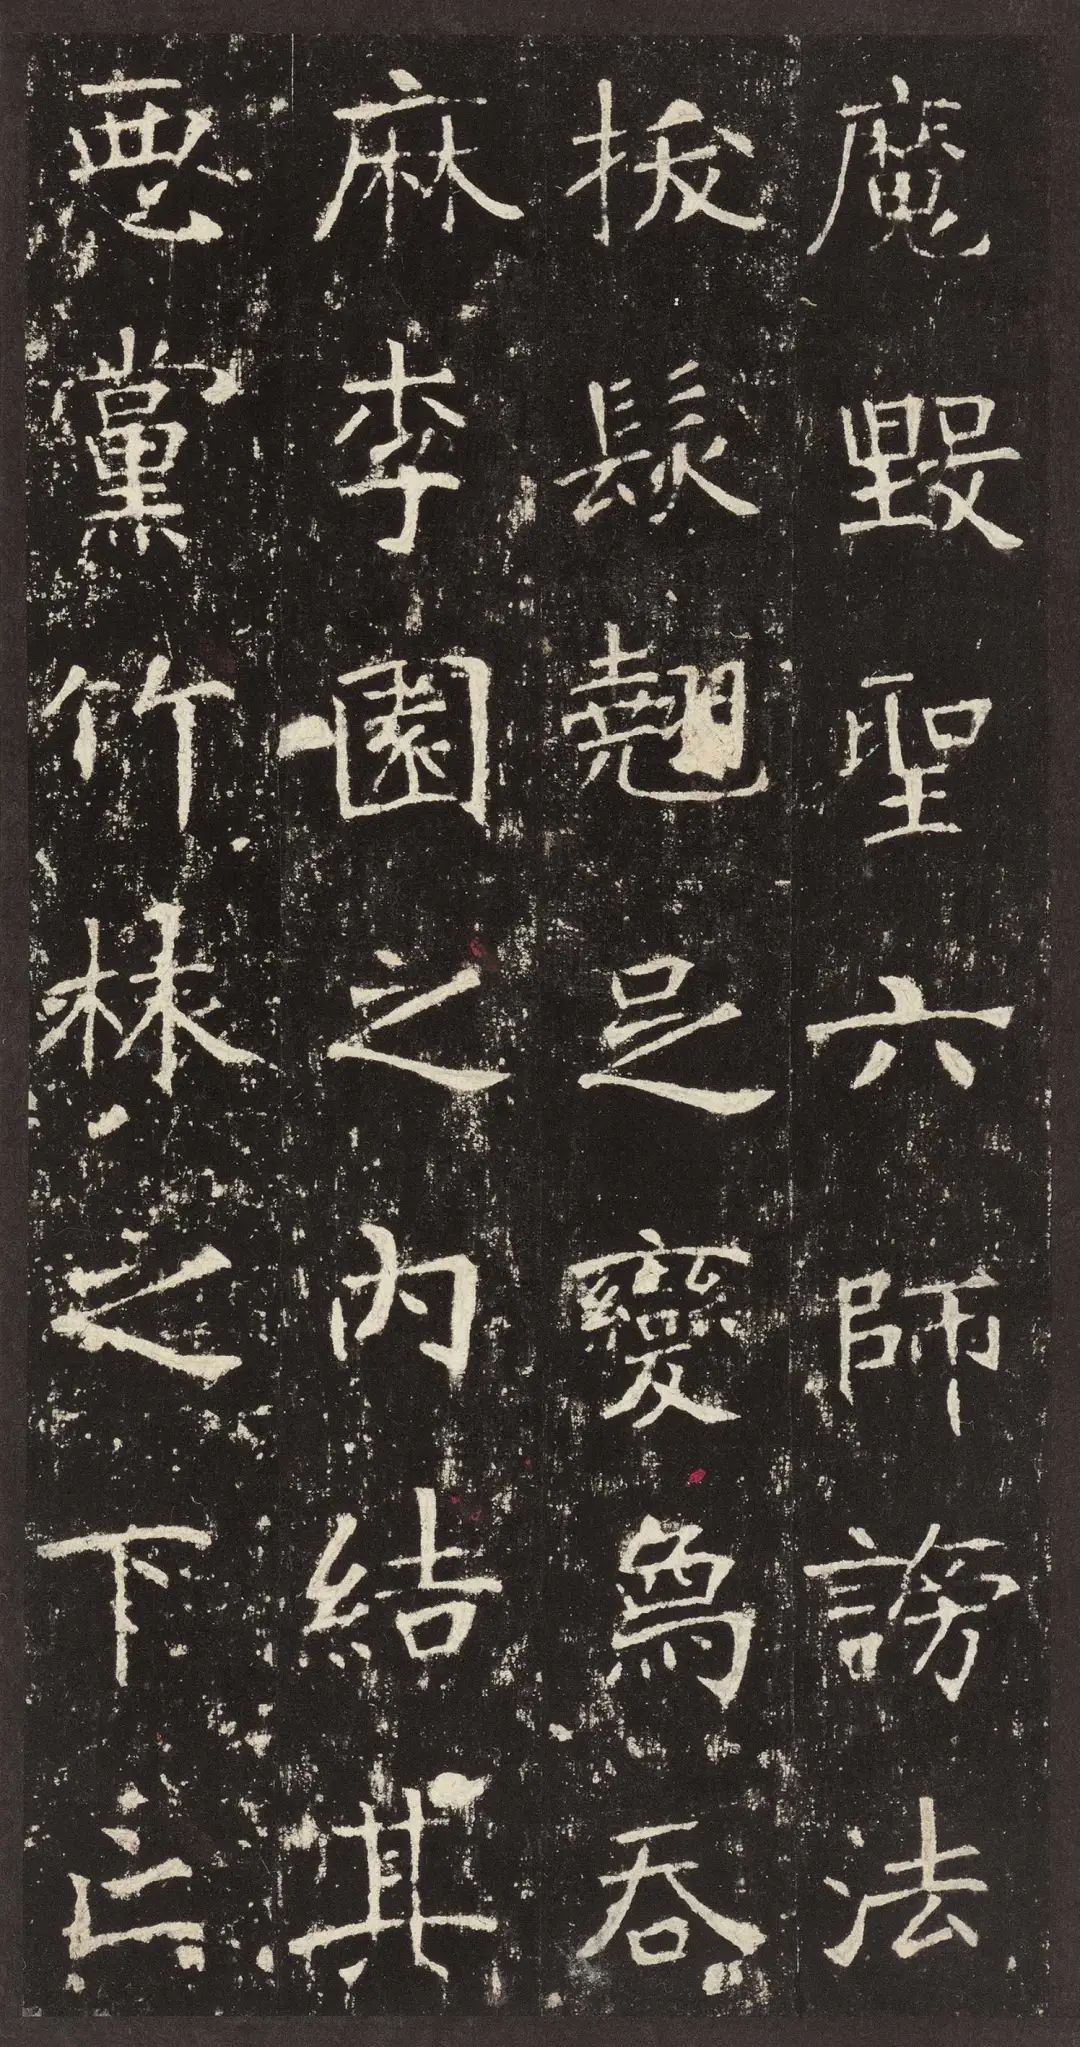 魔毀聖六師謗法
拔髮翹足變為吞
麻李園之內結其
惡黨竹林之下亡